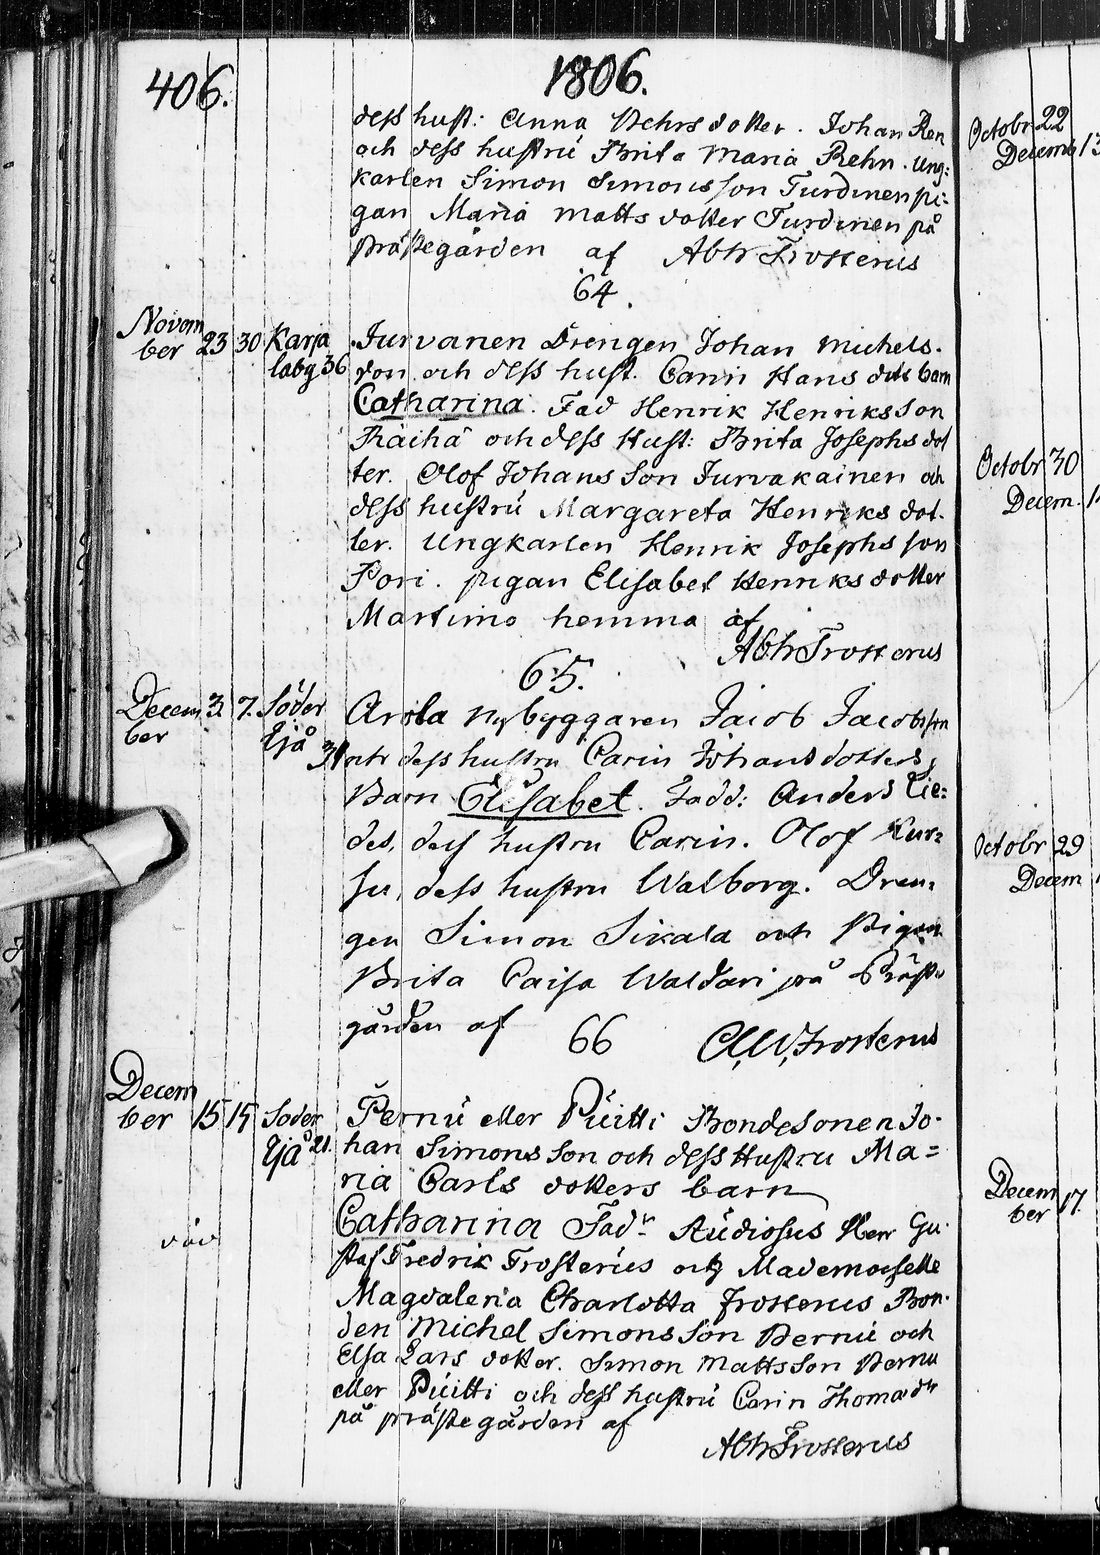 406.
1806.
dess hust: Anna Pehrsdotter. Johan Ren
och dess hustru Brita Maria Rehn. Ung-
karlen Simon Simonsson Turdinen pi-
gan Maria Mattsdotter Turdinen på
prästegården af Abr Frosterus
64.
Novem
ber 23 30 Karja
labg 36
Jurvanen Drengen Johan Michels-
son och dess hust. Carin Hans dotts barn
Catharina. Fad Henrik Henriksson
Räihä och dess Hust: Brita Josephs dot
ter. Olof Johansson Jurvakainen och
dess hustru Margareta Henriks dot-
ter. Ungkarlen Henrik Josephsson
Pori. pigan Elisabet Henriksdotter
Martimo hemma af
Abr Frosterus
65.
Decem 3. 7. Söder
ber Ijå 31
Arola Nybyggaren Jacob Jacobsson
och dess hustru Carin Johansdotters
Barn Elisabet. Fadd: Anders Tie-
des, dess hustru Carin. Olof Kur-
su, dess hustru Walborg. Dren-
gen Simon Sikala och Pigan
Brita Caisa Waldari på Präst-
gården af
66 C,W,Frosterus
Decem
ber 15 15 Söder
Ijå 21.
Pernu eller Puitti Bondesonen Jo-
han Simonsson och dess Hustru Ma=
ria Carls dotters barn
Catharina Fadr Studiosus Herr Gu-
staf Fredrik Frosterus och Mademoiselle
Magdalena Charlotta Frosterus Bon-
den Michel Simonsson Pernu och
Elsa Lars dotter. Simon Mattsson Pernu
eller Puitti och dess hustru Carin Thomadr
på prästegården af
Abr Frosterus
död
Octobr 22
Decemb 13
Octobr 30
Decem.
Octobr 29
Decem
Decem
ber 17.